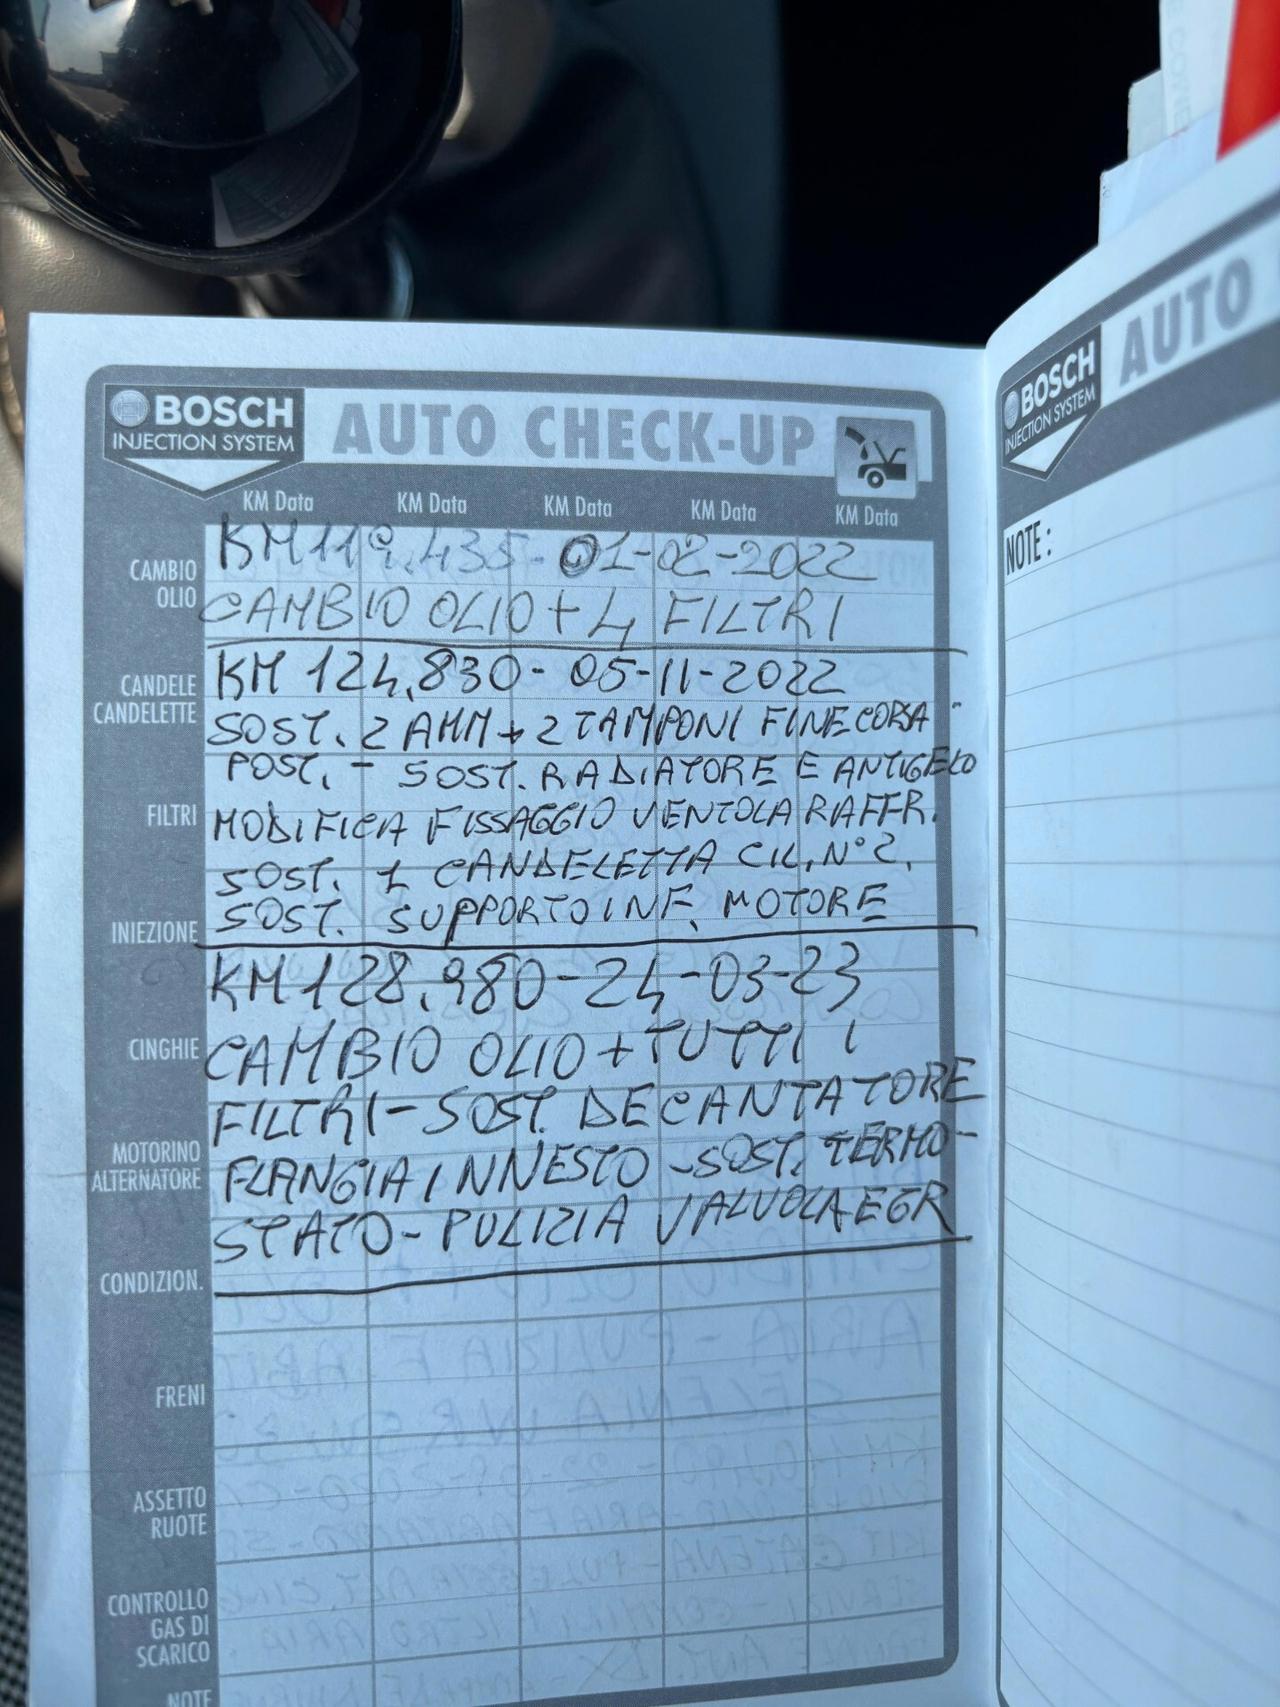 BOSCH
INJECTION SYSTEM
AUTO CHECK-UP
KM Data KM Data KM Data KM Data KM Data
CAMBIO
OLIO
CANDELE
CANDELETTE
FILTRI
INIEZIONE
CINGHIE
MOTORINO
ALTERNATORE
CONDIZION.
FRENI
ASSETTO
RUOTE
CONTROLLO
GAS DI
SCARICO
NOTE
KM 119.435 - 01-02-2022
CAMBIO OLIO + 4 FILTRI
KM 124.830 - 05-11-2022
SOST. 2 AMM + 2 TAMPONI FINE CORSA
POST. - SOST. RADIATORE E ANTIGELO
MODIFICA FISSAGGIO VENTOLA RAFFR.
SOST. 1 CANDELETTA CIL. N° 2.
SOST. SUPPORTO INF. MOTORE
KM 128.980 - 24-03-23
CAMBIO OLIO + TUTTI I
FILTRI - SOST. DECANTATORE
FLANGIA INNESTO - SOST. TERMO-
STATO - PULIZIA VALVOLA EGR
BOSCH
INJECTION SYSTEM
AUTO
NOTE :